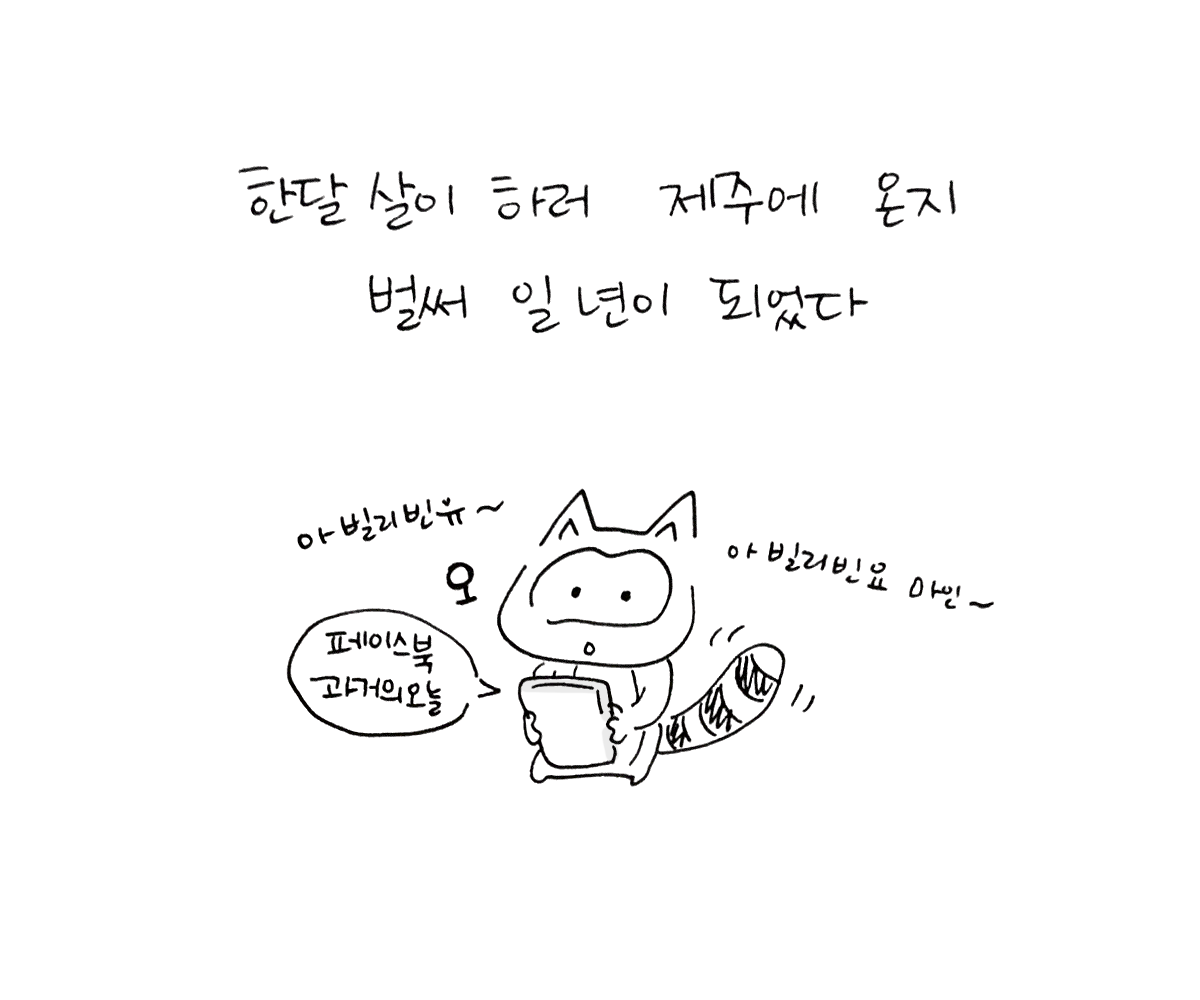 한달 살이 하러 제주에 온지
벌써 일 년이 되었다
아 빌리빈유~
오
아 빌러빈요 마인~
페이스북
과거의오늘